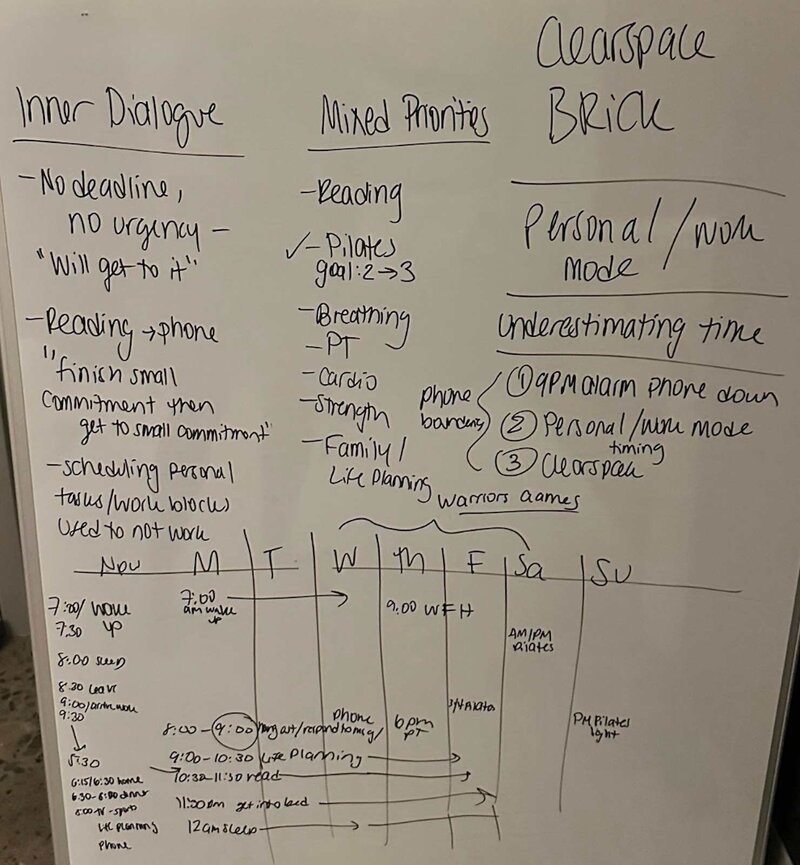 Clearspace
BRICK
Personal/work
mode
Underestimating time
① 9PM alarm phone down
② Personal/work mode
timing
③ Clearspace
phone
Inner Dialogue
- No deadline,
no urgency -
"Will get to it"
- Reading → phone
"finish small
commitment then
get to small commitment"
- scheduling personal
tasks/work blocks
used to not work
Mixed Priorities
- Reading
✓ - Pilates
goal: 2 → 3
- Breathing
- PT
- Cardio
- Strength
- Family/
Life Planning
Warriors Games
Now M T W Th F Sa Su
7:00/ woke
7:30 up
8:00
8:30 leave
9:00/
9:30
5:30
6:15/6:30 home
6:30-8:00 dinner
8:00 TV-
Life planning
phone
7:00
am wake
up
9:00 WFH
AM/PM
Pilates
Pilates
PM Pilates
light
phone
6pm
PT
8:00 - 9:00
9:00-10:30 Life Planning
10:30-11:30 read
11:00pm get into bed
12am sleep